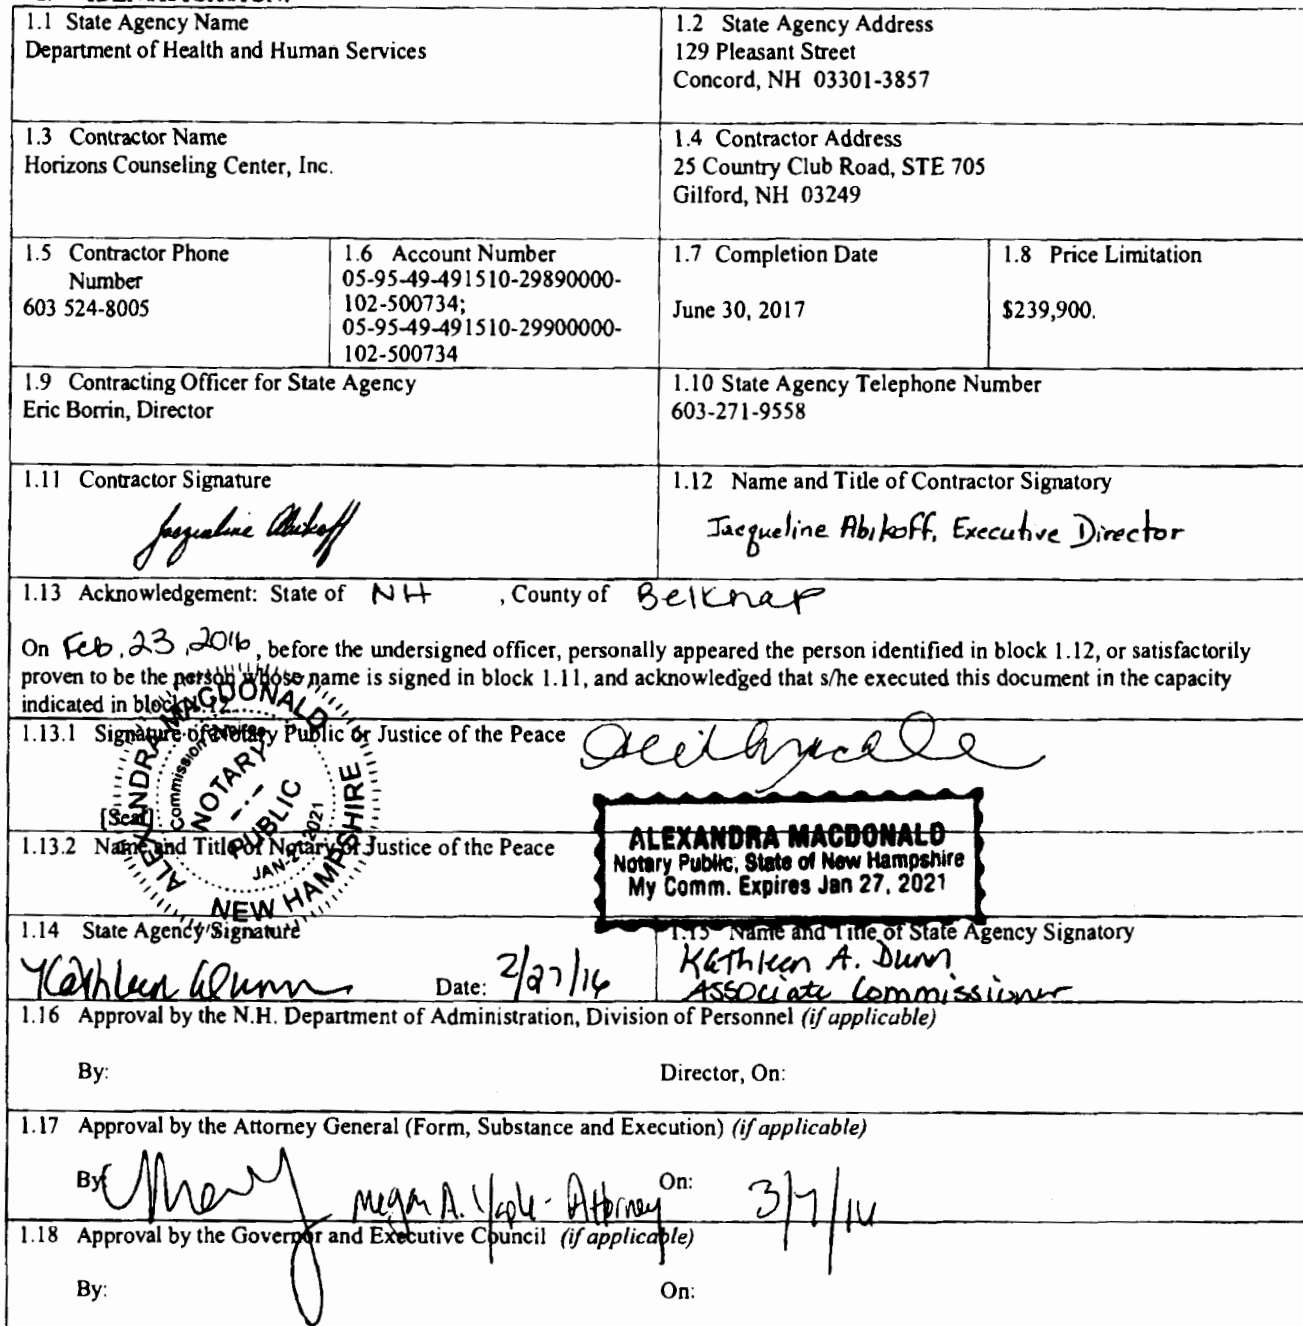 1.1 State Agency Name
Department of Health and Human Services
1.2 State Agency Address
129 Pleasant Street
Concord, NH 03301-3857
1.3 Contractor Name
Horizons Counseling Center, Inc.
1.4 Contractor Address
25 Country Club Road, STE 705
Gilford, NH 03249
1.5 Contractor Phone
Number
603 524-8005
1.6 Account Number
05-95-49-491510-29890000-
102-500734;
05-95-49-491510-29900000-
102-500734
1.7 Completion Date
June 30, 2017
1.8 Price Limitation
$239,900.
1.9 Contracting Officer for State Agency
Eric Borrin, Director
1.10 State Agency Telephone Number
603-271-9558
1.11 Contractor Signature
Jacqueline Abikoff
1.12 Name and Title of Contractor Signatory
Jacqueline Abikoff, Executive Director
1.13 Acknowledgement: State of NH , County of Belknap
On Feb. 23, 2016, before the undersigned officer, personally appeared the person identified in block 1.12, or satisfactorily
proven to be the person whose name is signed in block 1.11, and acknowledged that s/he executed this document in the capacity
indicated in block 1.12.
1.13.1 Signature of Notary Public or Justice of the Peace
[Seal]
ALEXANDRA MACDONALD
Commission Expires
NOTARY
PUBLIC
JAN-27-2021
NEW HAMPSHIRE
1.13.2 Name and Title of Notary or Justice of the Peace
ALEXANDRA MACDONALD
Notary Public, State of New Hampshire
My Comm. Expires Jan 27, 2021
1.14 State Agency Signature
Kathleen A Dunn Date: 2/27/16
1.15 Name and Title of State Agency Signatory
Kathleen A. Dunn
Associate Commissioner
1.16 Approval by the N.H. Department of Administration, Division of Personnel (if applicable)
By: Director, On:
1.17 Approval by the Attorney General (Form, Substance and Execution) (if applicable)
By: Megan A. - Attorney On: 3/7/16
1.18 Approval by the Governor and Executive Council (if applicable)
By: On: